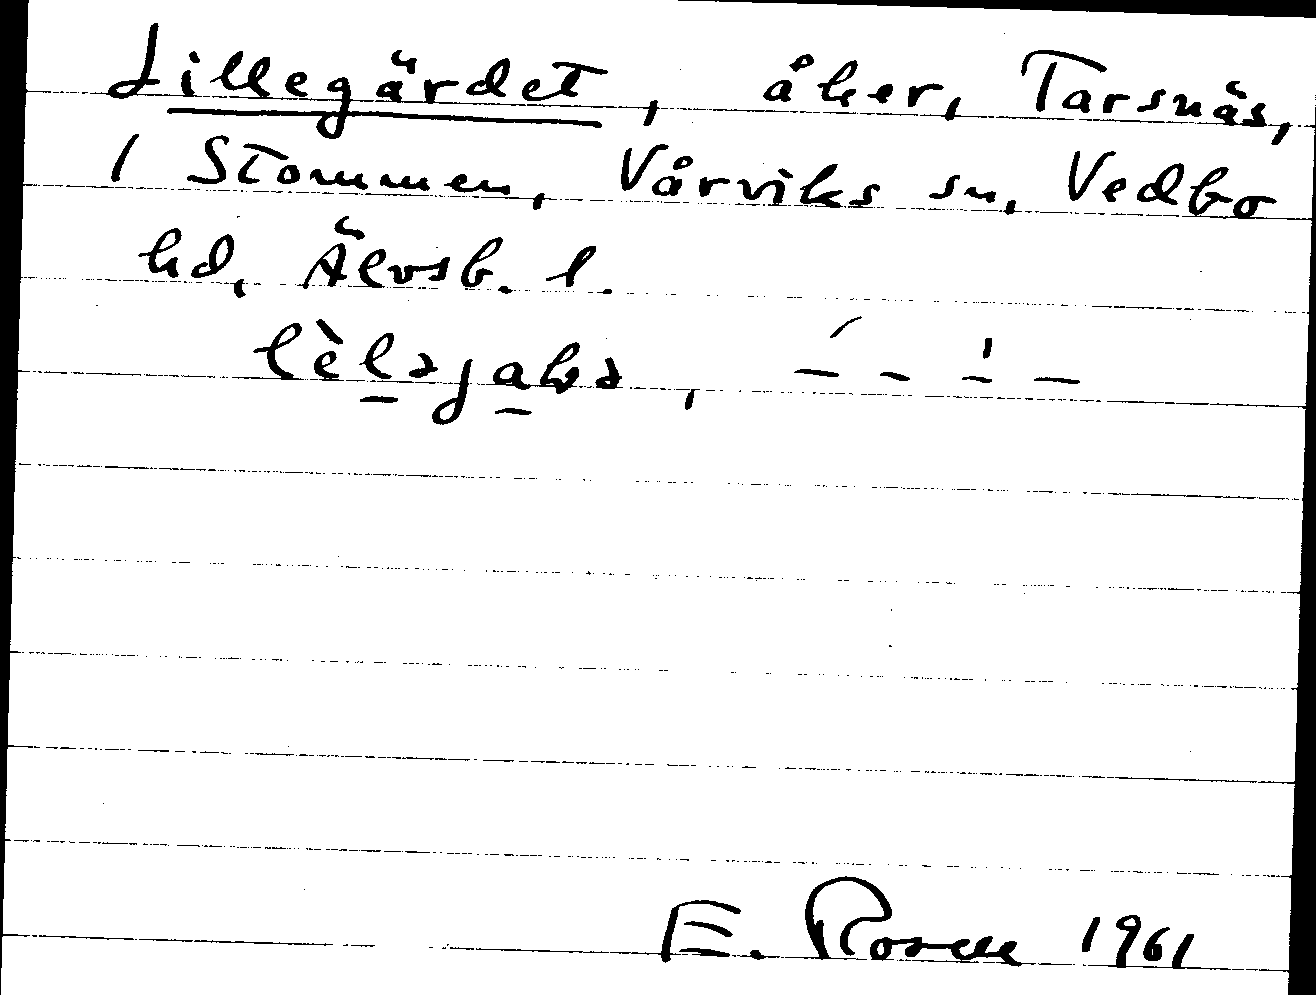 Lillegärdet, åker, Tarsnäs,
1 Stommen, Vårviks sn, Vedbo
hd, Älvsb. l.
E. Rosell 1961